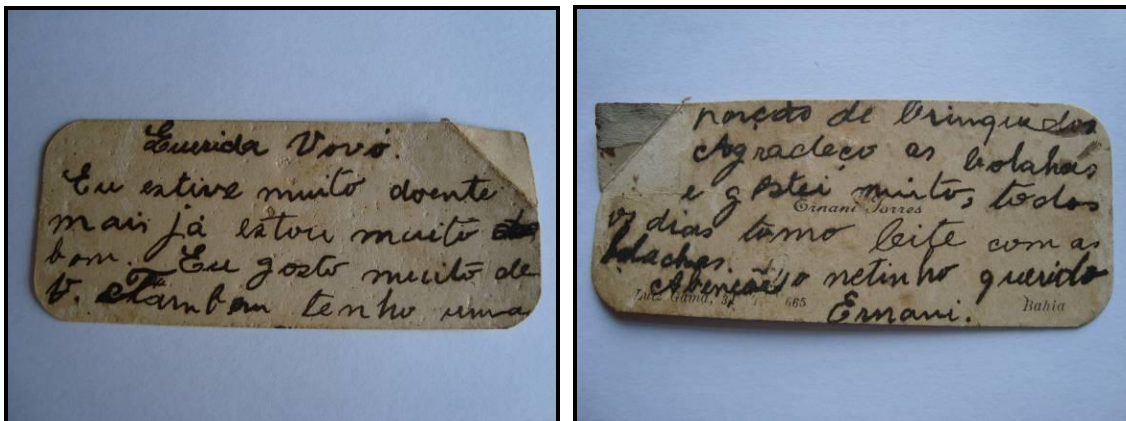 Querida Vovó.
Eu estive muito doente
mais já estou muito
bom. Eu gosto muito de
v. Tambem tenho uma
porção de brinquedos
Agradeço as bolahas
e gostei muito, todos
Ernani Torres
os dias tomo leite com as
bolachas.
Abençoe o netinho querido
Luiz Gama, 665
Bahia
Ernani.